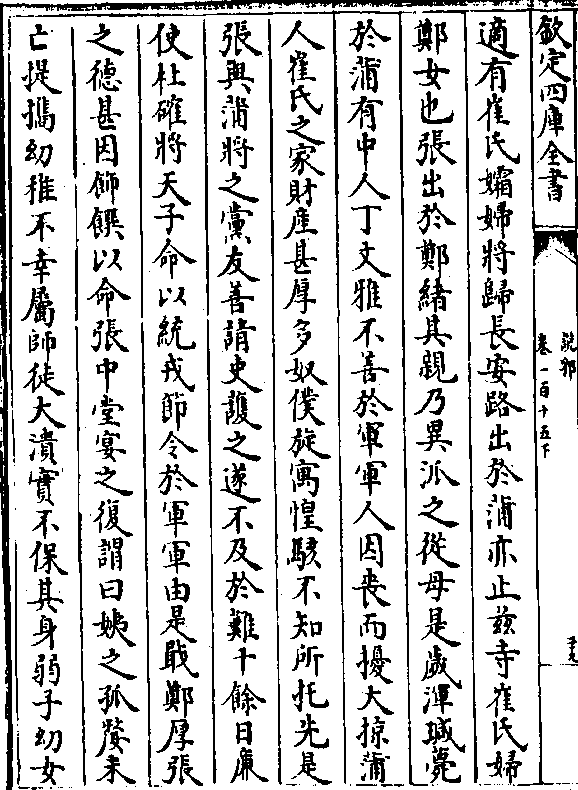 欽定四庫全書
說郛
卷一百十五下
適有崔氏孀婦將歸長安路出於蒲亦止茲寺崔氏婦
鄭女也張出於鄭緒其親乃異派之從母是歲渾瑊薨
於蒲有中人丁文雅不善於軍軍人因喪而擾大掠蒲
人崔氏之家財產甚厚多奴僕旅寓惶駭不知所托先是
張與蒲將之黨友善請吏護之遂不及於難十餘日廉
使杜確將天子命以統戎節令於軍軍由是戢鄭厚張
之德甚因飾饌以命張中堂宴之復謂曰姨之孤嫠未
亡提攜幼稚不幸屬師徒大潰實不保其身弱子幼女